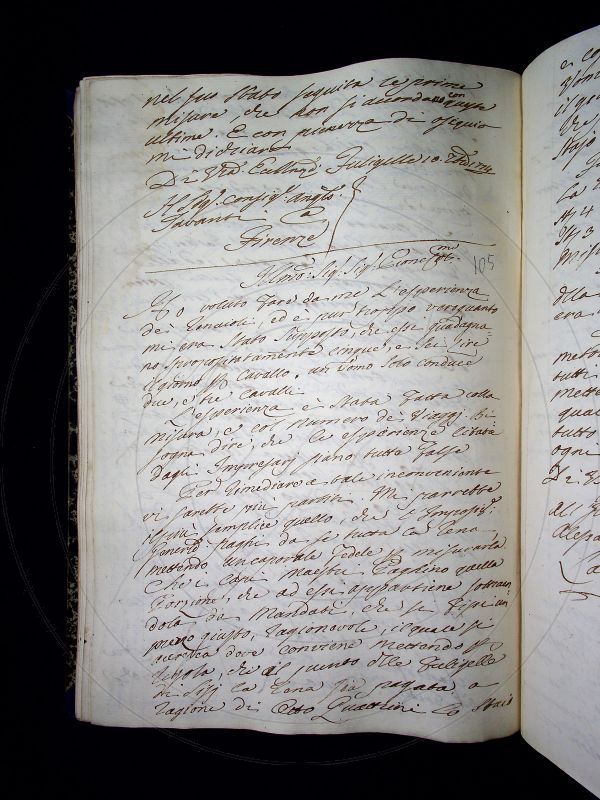 nel suo stato seguita le prime
misure, che non si accordano con queste
ultime. E con pienezza di ossequio
mi dichiaro
Di V.ra Eccellenza Filigelle 10
Al Sig.r Consig.r Angelo
Tavanti a
Firenze
105
Ho voluto fare da me l'esperienza
dei Renaioli, ed è pur troppo vero quanto
mi era stato supposto, che essi guadagna
no spropositatamente cinque, e sei lire
il giorno p Cavallo, un Uomo solo conduce
due, e tre Cavalli
L'esperienza è stata fatta colla
misura, e col numero dei viaggi. Bi
sogna dire, che le esperienze citate
dagli Impresarj siano tutte false
Per rimediare a tale inconveniente
vi sarebbe più partiti. Mi parrebbe
il più semplice quello, che l'
paghi da se tutta la rena,
mettendo un caporale fedele p misurarla.
Che i Capi Maestri paghino quella
porzione, che ad essi appartiene
dola da Mandati, che si fissi un
prezzo giusto, ragionevole, il quale si
dove conviene mettendo p
regola, che al punto delle Filigelle
si la rena già pagata a
ragione di Otto Quattrini lo Staio